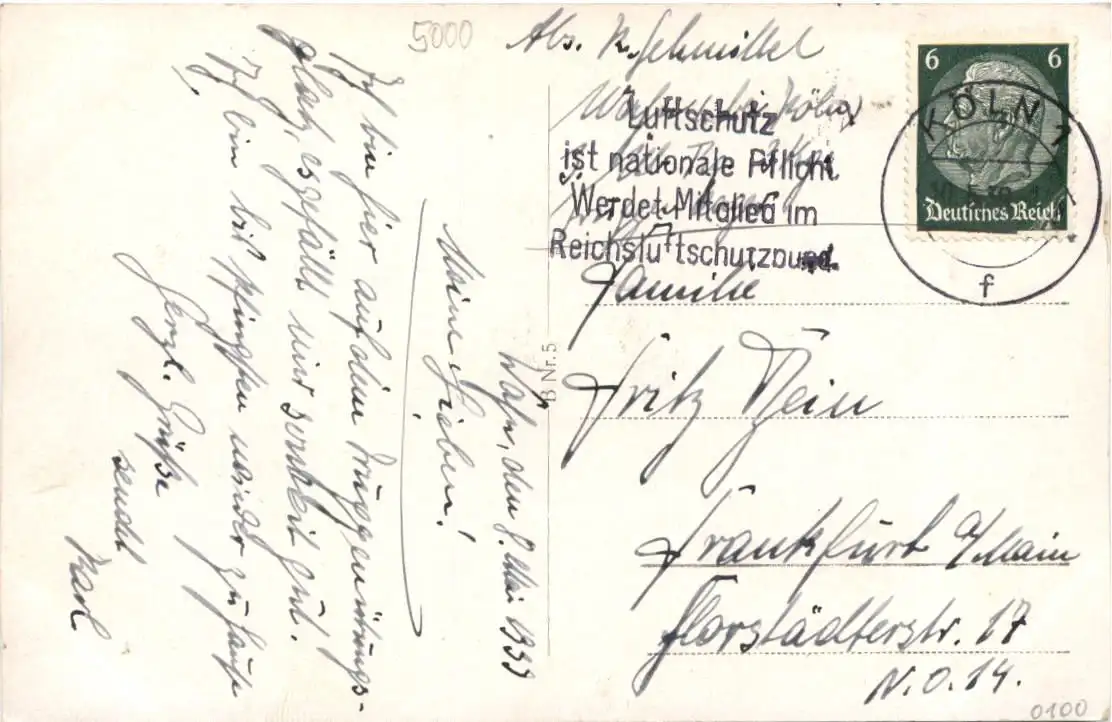 5000
Abs. K. Schmittel
Wahn bei Köln
Luftschutz
ist nationale Pflicht.
Werdet Mitglied im
Reichsluftschutzbund.
6 6
Deutsches Reich
KÖLN
f
Familie
Fritz Hein
Frankfurt a/Main
Florstädterstr. 17
N.O.14.
0100
B Nr. 5
Wahn, den 9. Mai 1939
Meine Lieben!
Ich bin hier auf dem Truppenübungs-
platz, es gefällt mir soweit gut.
Ich bin bis Pfingsten wieder zu Hause
Herzl. Grüße
sendet
Karl